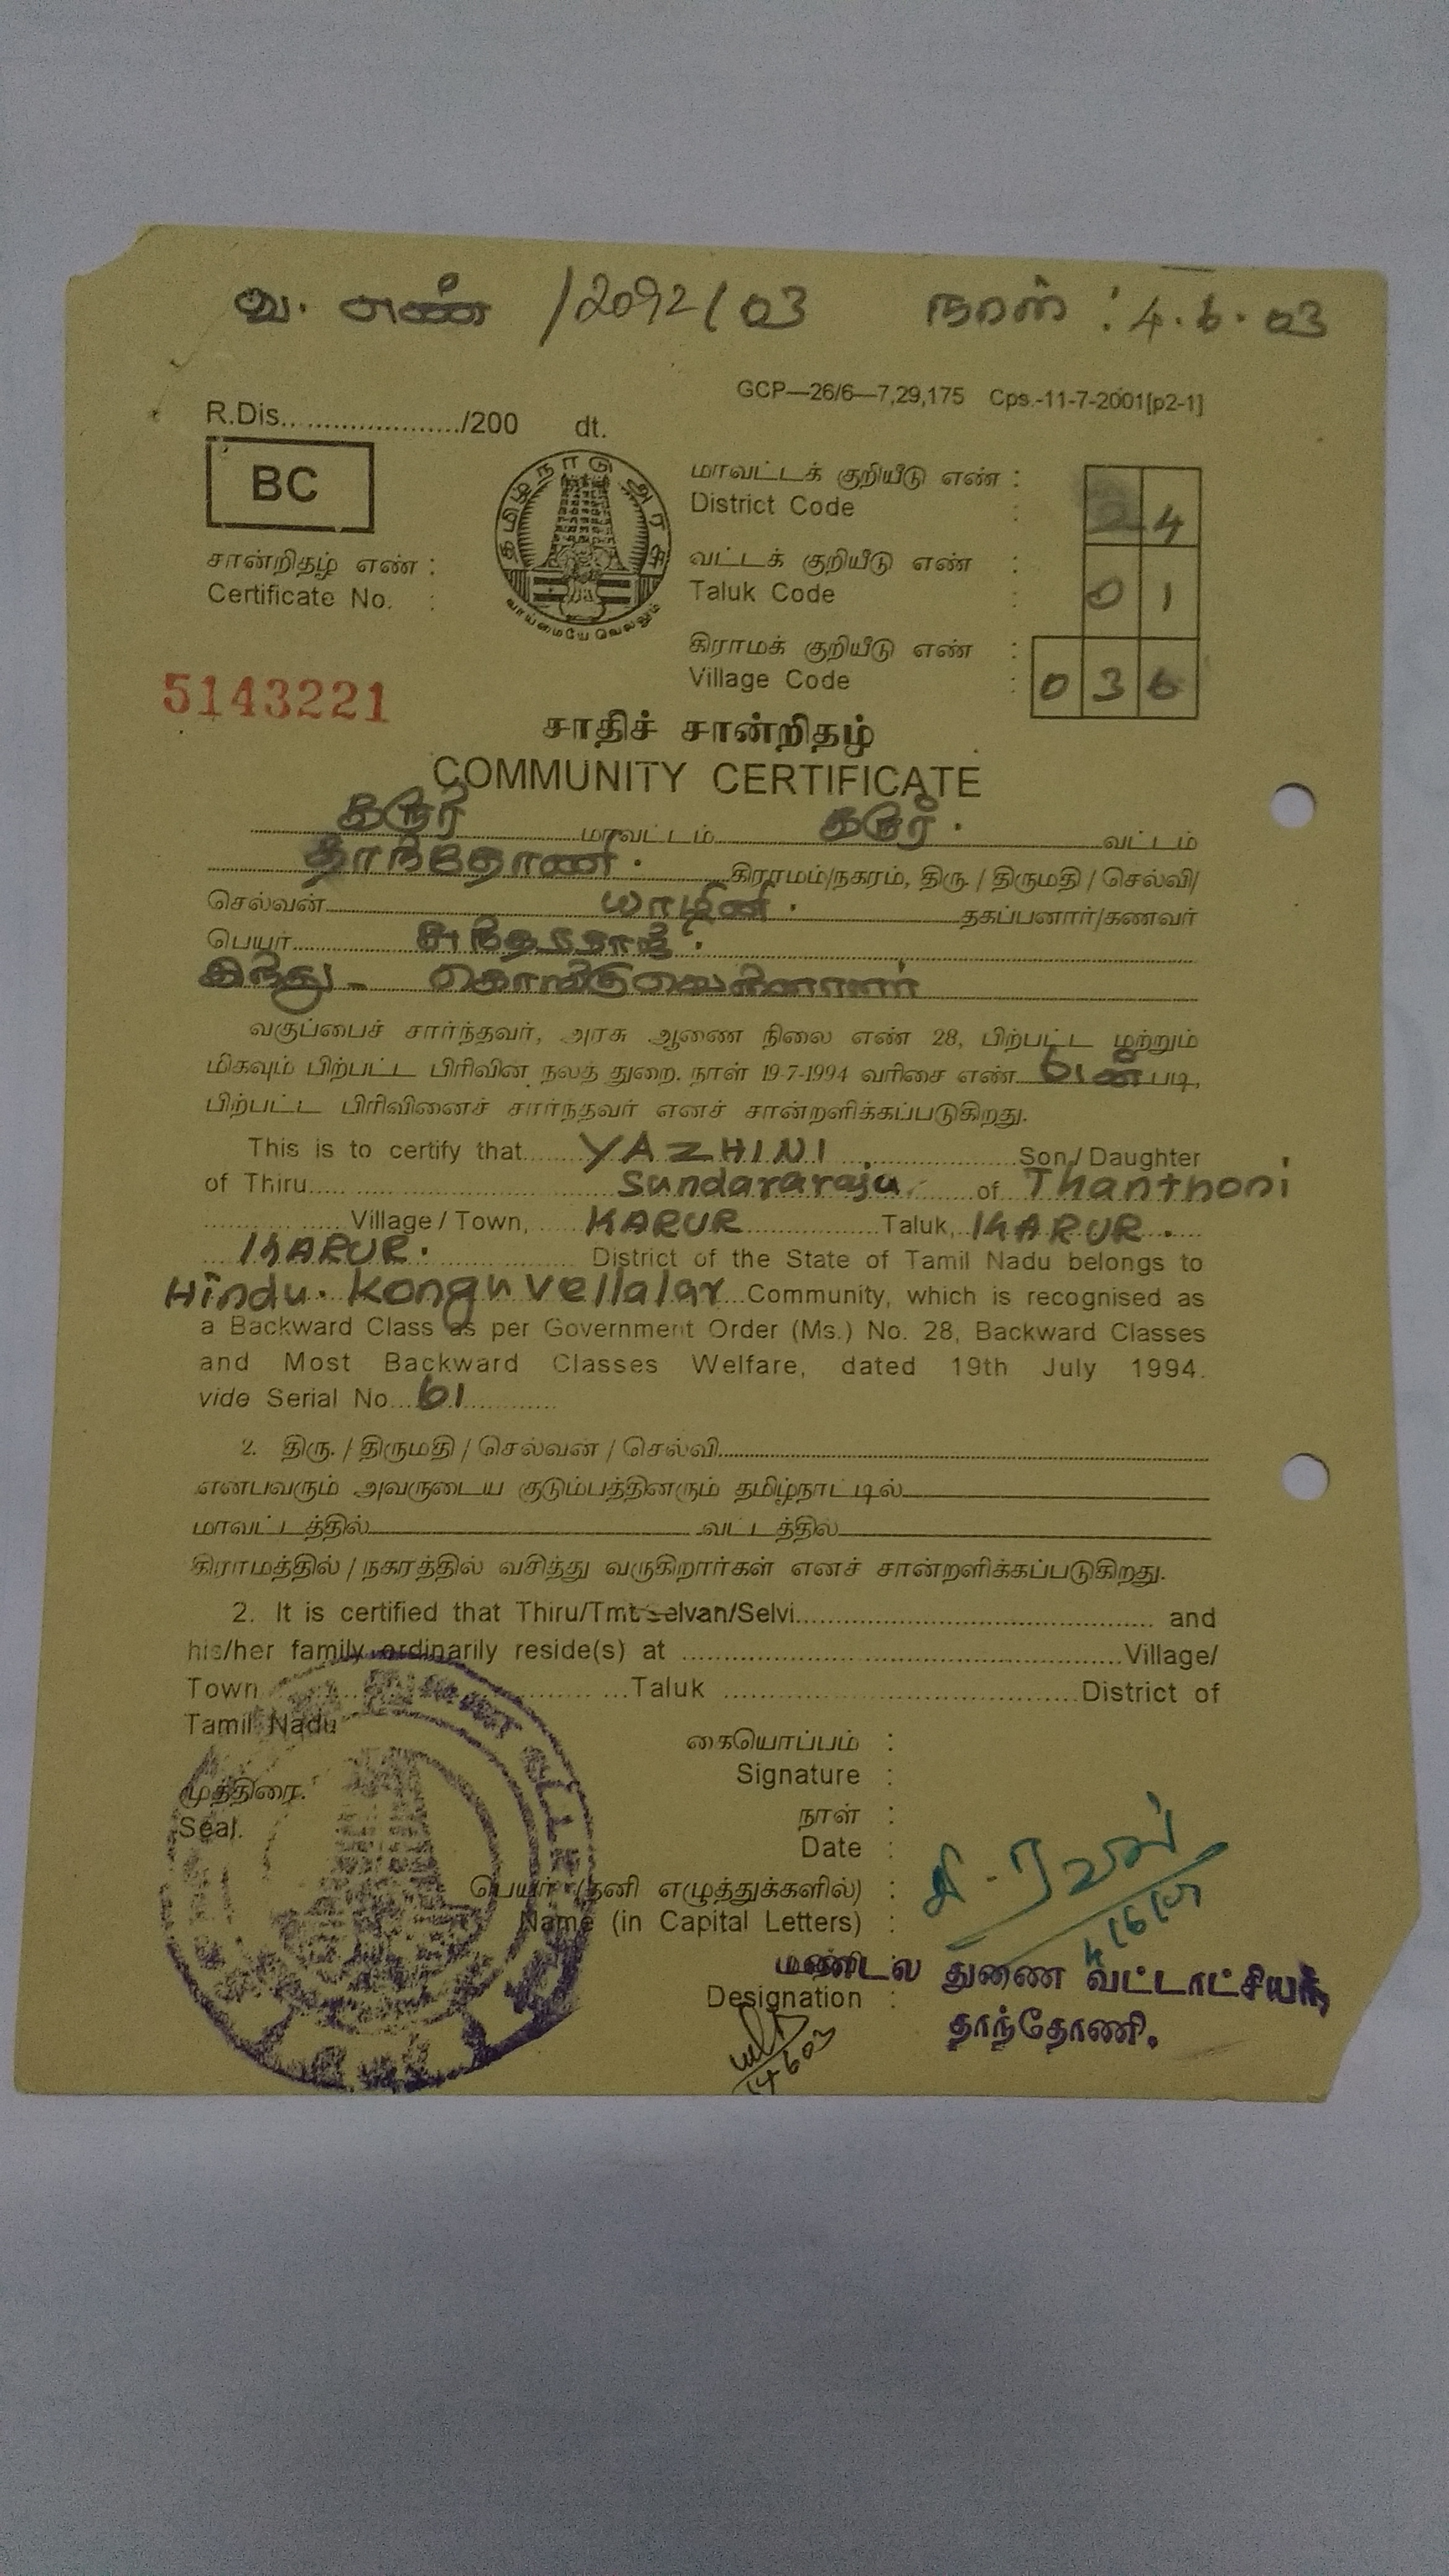 வ. எண் /2092/03 நாள் : 4.6.03
GCP—26/6—7,29,175 Cps.-11-7-2001[p2-1]
R.Dis....................../200 dt.
BC
தமிழ்நாடு அரசு
வாய்மையே வெல்லும்
மாவட்டக் குறியீடு எண் :
District Code : 24
சான்றிதழ் எண் :
Certificate No. :
வட்டக் குறியீடு எண் :
Taluk Code : 01
கிராமக் குறியீடு எண் :
Village Code : 036
5143221
சாதிச் சான்றிதழ்
COMMUNITY CERTIFICATE
கரூர் மாவட்டம் கரூர். வட்டம்
தாந்தோணி. கிராமம்/நகரம், திரு. / திருமதி / செல்வி/
செல்வன் யாழினி. தகப்பனார்/கணவர்
பெயர் சுந்தரராஜு.
இந்து - கொங்குவெள்ளாளர்
வகுப்பைச் சார்ந்தவர், அரசு ஆணை நிலை எண் 28, பிற்பட்ட மற்றும்
மிகவும் பிற்பட்ட பிரிவின நலத் துறை. நாள் 19-7-1994 வரிசை எண் 61ன் படி,
பிற்பட்ட பிரிவினைச் சார்ந்தவர் எனச் சான்றளிக்கப்படுகிறது.
This is to certify that YAZHINI Son/Daughter
of Thiru Sundararaju of Thanthoni
Village / Town, KARUR Taluk, KARUR.
KARUR. District of the State of Tamil Nadu belongs to
Hindu. Kongu vellalar Community, which is recognised as
a Backward Class as per Government Order (Ms.) No. 28, Backward Classes
and Most Backward Classes Welfare, dated 19th July 1994.
vide Serial No. 61
2. திரு. / திருமதி / செல்வன் / செல்வி
என்பவரும் அவருடைய குடும்பத்தினரும் தமிழ்நாட்டில்
மாவட்டத்தில் வட்டத்தில்
கிராமத்தில் / நகரத்தில் வசித்து வருகிறார்கள் எனச் சான்றளிக்கப்படுகிறது.
2. It is certified that Thiru/Tmt Selvan/Selvi and
his/her family ordinarily reside(s) at Village/
Town Taluk District of
Tamil Nadu
கையொப்பம் :
Signature :
முத்திரை.
Seal.
நாள் :
Date :
பெயர் (தனி எழுத்துக்களில்) :
Name (in Capital Letters) :
மண்டல துணை வட்டாட்சியர்
Designation :
தாந்தோணி.